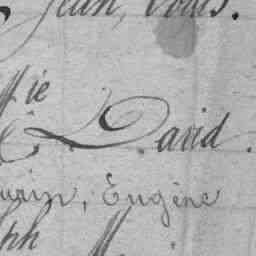 Jean, Louis.
Mie
David.
urin, Eugène
ph